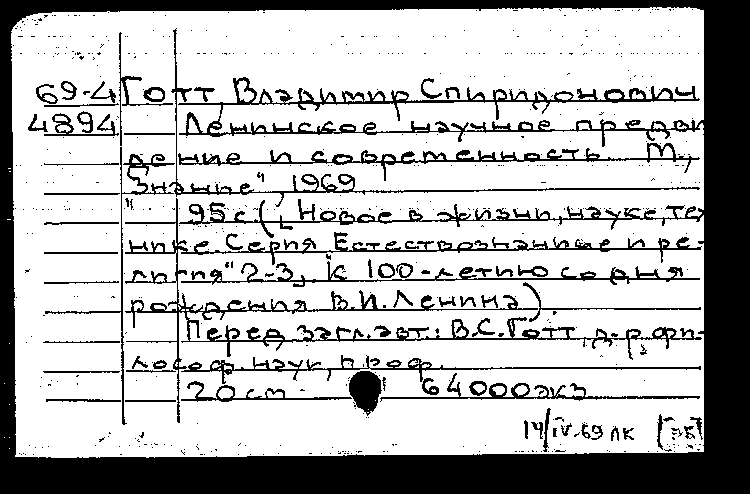 69-4 Готт, Владимир Спиридонович
4894 Ленинское научное предви
дение и современность. М.,
"Знание", 1969.
95 с. ( Новое в жизни, науке, тех
нике. Серия Естествознание и ре-
лигия" 2-3, К 100-летию со дня
рождения В.И.Ленина).
Перед загл.авт.: В.С.Готт, д-р фи-
лософ. наук, проф.
20 см. 64000экз
14/IV-69 лк